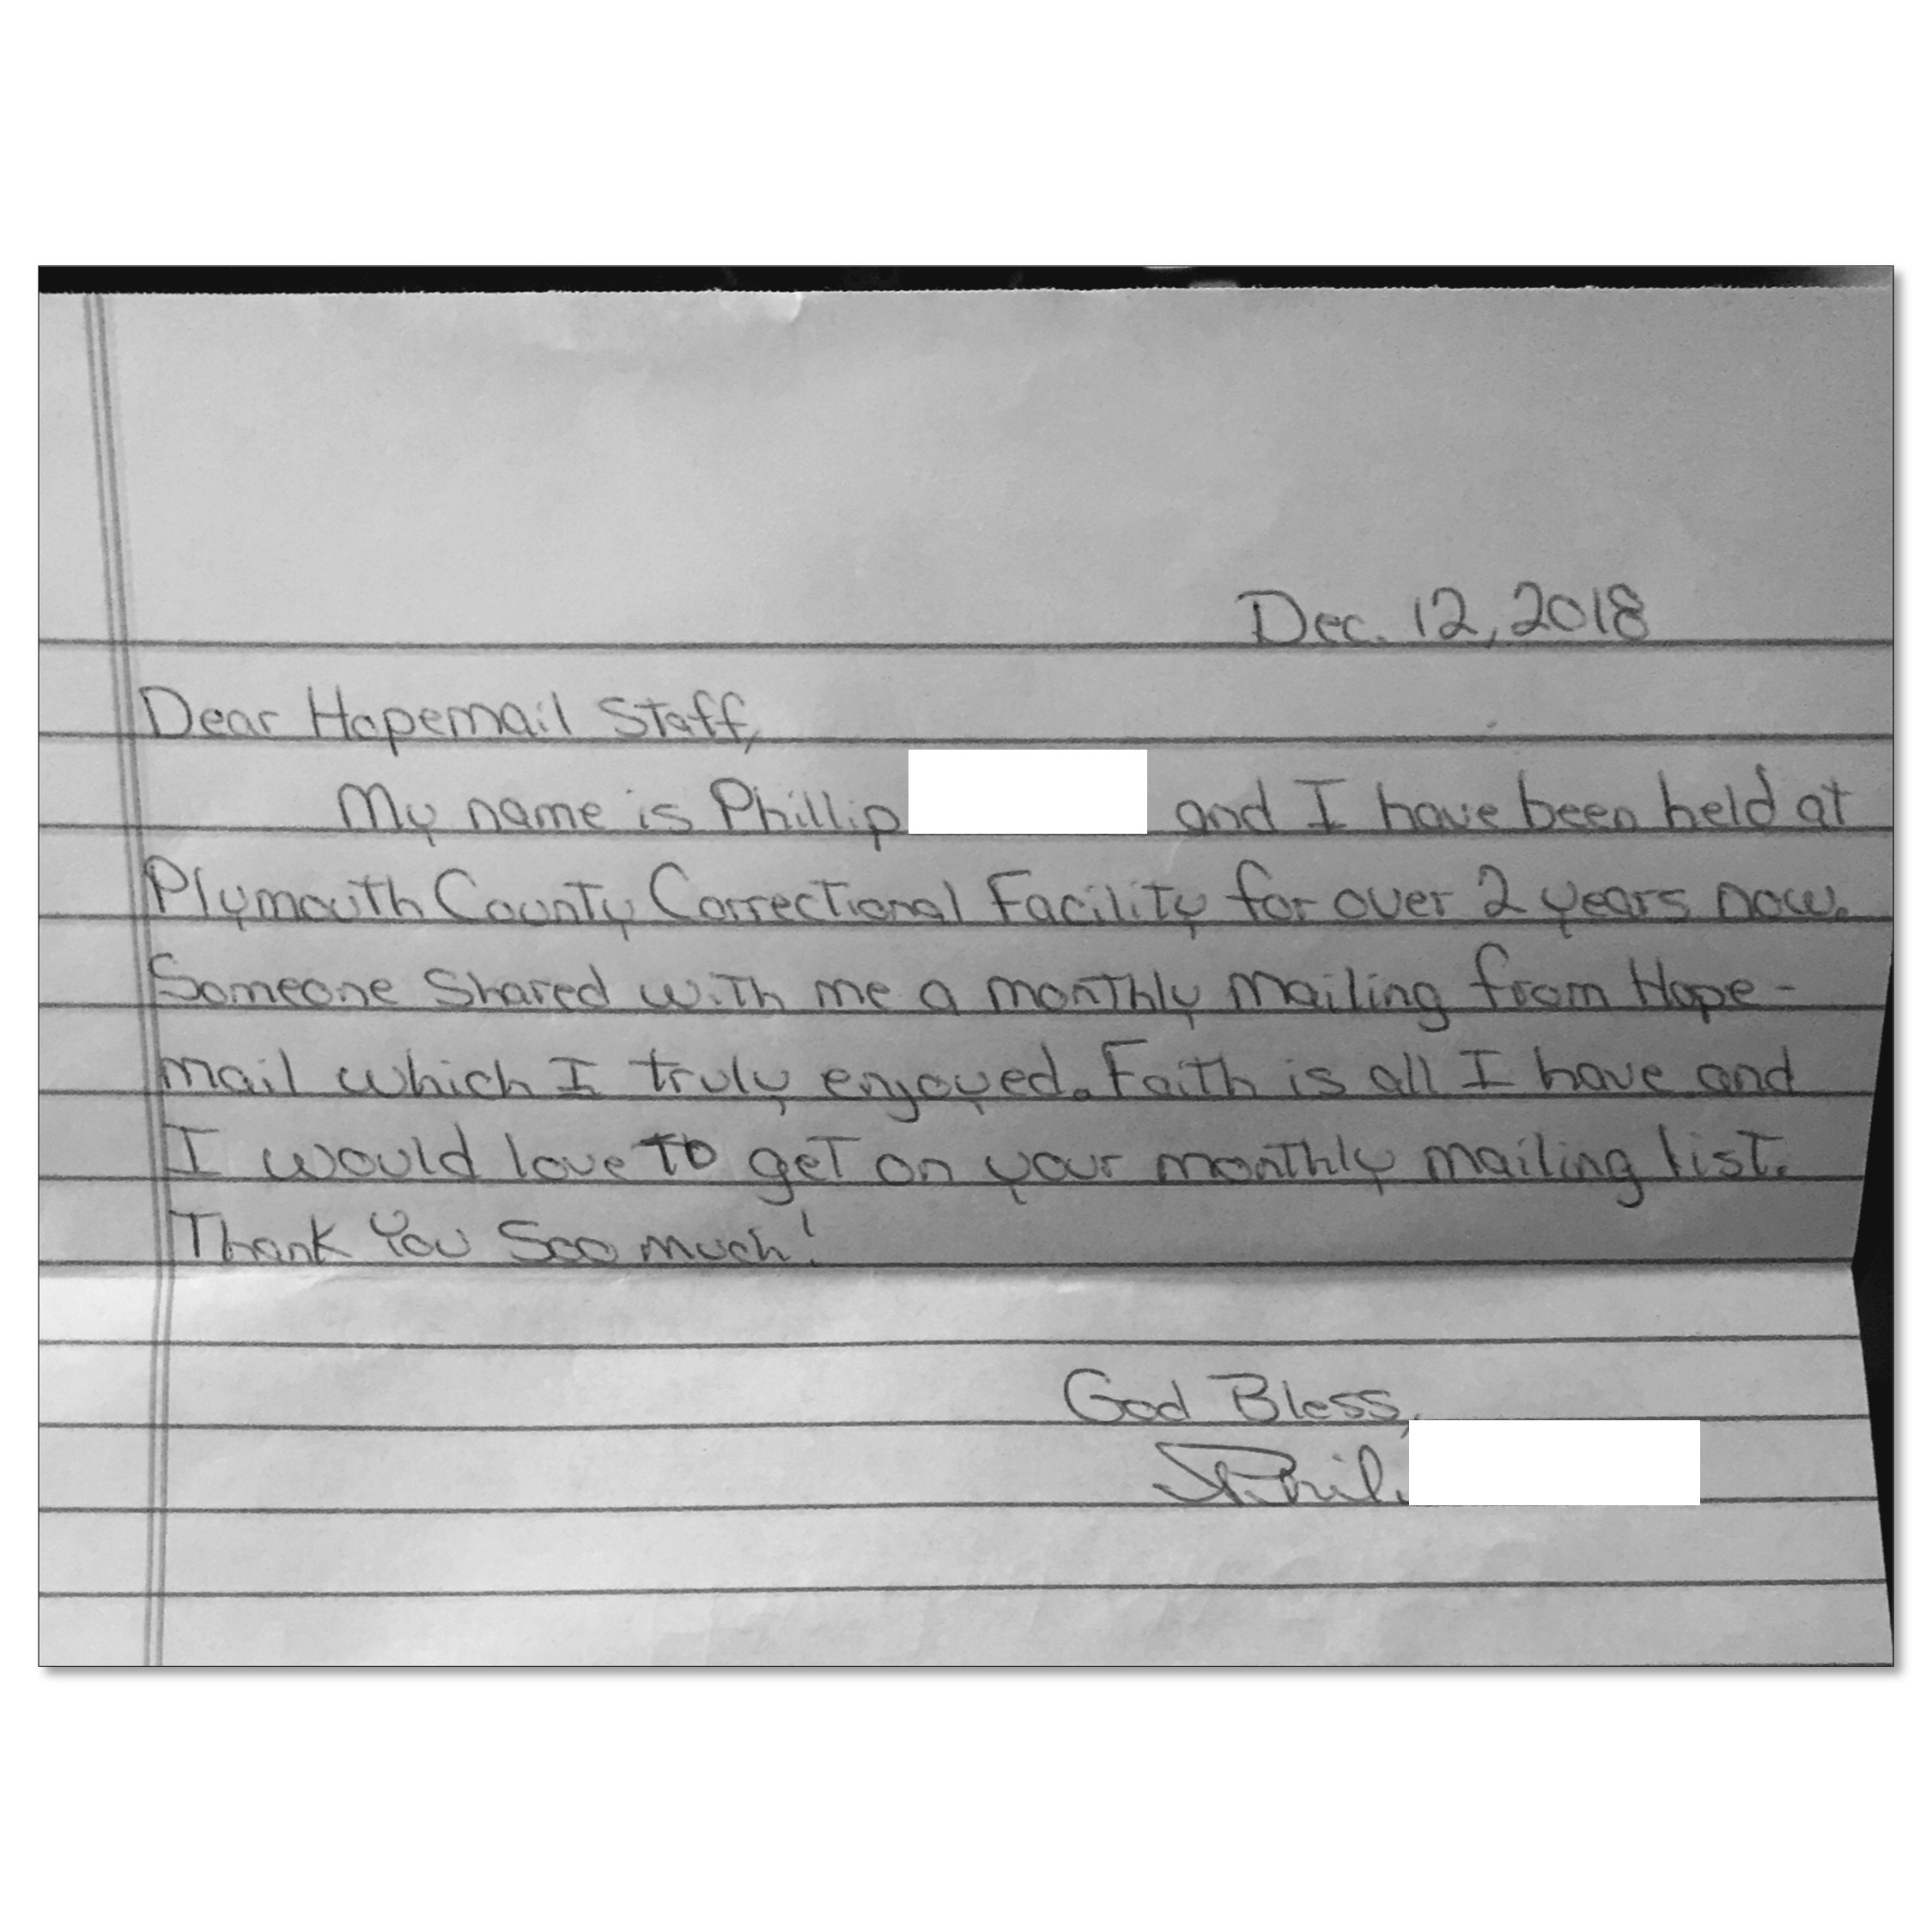 Dec. 12, 2018
Dear Hopemail Staff,
My name is Phillip and I have been held at
Plymouth County Correctional Facility for over 2 years now.
Someone Shared with me a monthly mailing from Hope-
mail which I truly enjoyed. Faith is all I have and
I would love to get on your monthly mailing list.
Thank You Soo much!
God Bless,
Phil